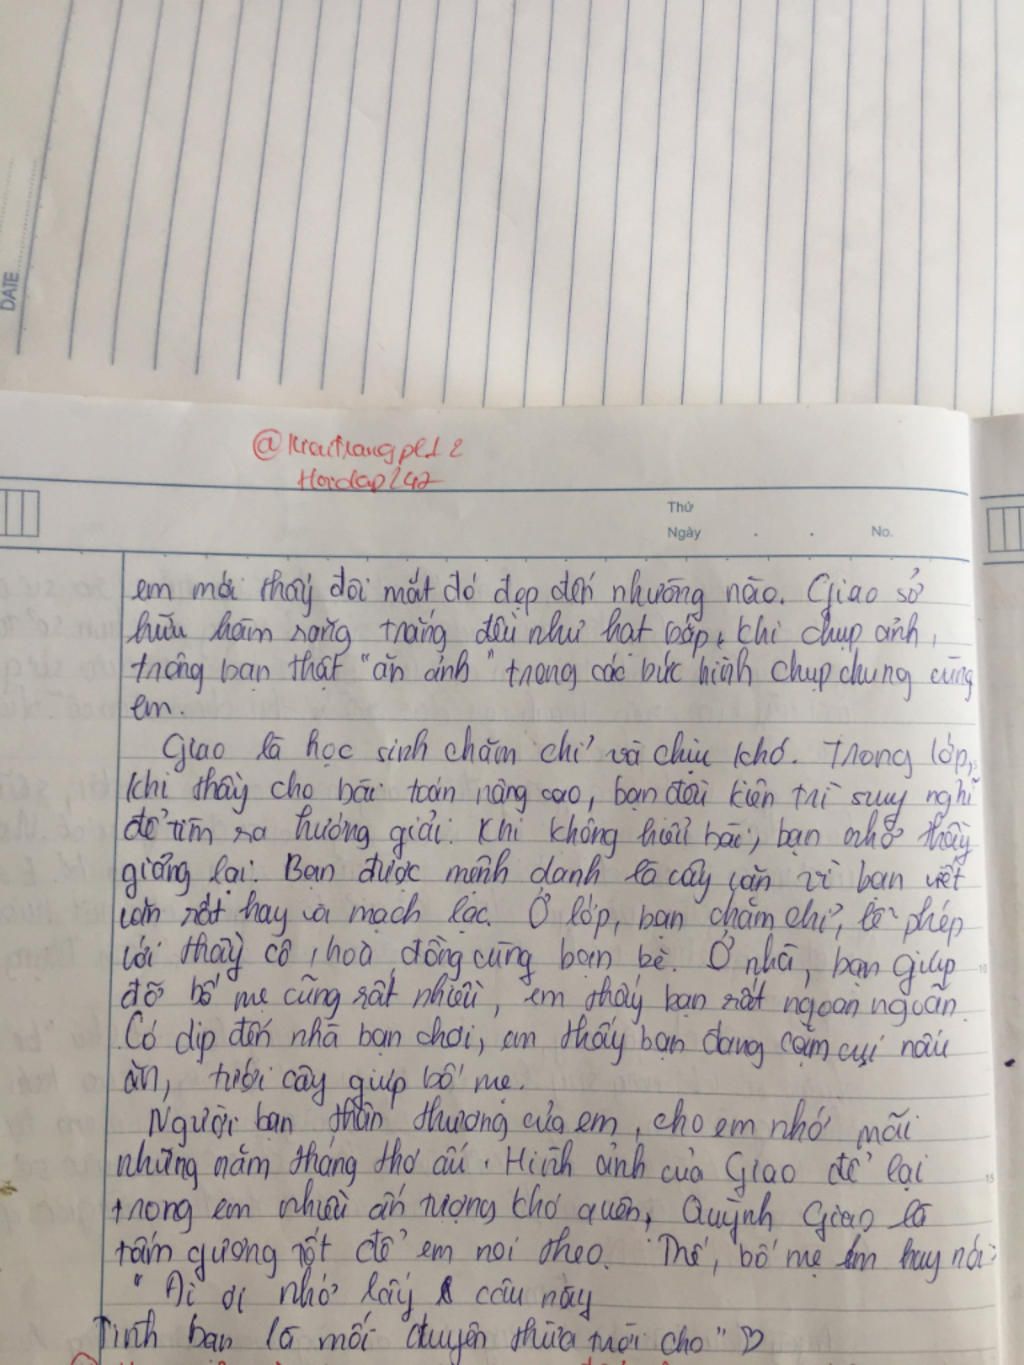 DATE
Hoidap247
Thứ
Ngày . . No.
em mới thấy đôi mắt đó đẹp đến nhường nào. Giao sở
hữu hàm răng trắng đều như hạt bắp, khi chụp ảnh,
trông bạn thật "ăn ảnh" trong các bức hình chụp chung cùng
em.
Giao là học sinh chăm chỉ và chịu khó. Trong lớp,
khi thầy cho bài toán nâng cao, bạn đều kiên trì suy nghĩ
để tìm ra hướng giải. Khi không hiểu bài, bạn nhờ thầy
giảng lại. Bạn được mệnh danh là cây văn vì bạn viết
văn rất hay và mạch lạc. Ở lớp, bạn chăm chỉ, lễ phép
với thầy cô, hoà đồng cùng bạn bè. Ở nhà, bạn giúp
đỡ bố mẹ cũng rất nhiều, em thấy bạn rất ngoan ngoãn.
Có dịp đến nhà bạn chơi, em thấy bạn đang cặm cụi nấu
ăn, tưới cây giúp bố mẹ.
Người bạn thân thương của em, cho em nhớ mãi
những năm tháng thơ ấu. Hình ảnh của Giao để lại
trong em nhiều ấn tượng khó quên, Quỳnh Giao là
tấm gương tốt để em noi theo. Thế, bố mẹ em hay nói:
"Ai ơi nhớ lấy câu này
Tình bạn là mối duyên thừa trời cho" ♡